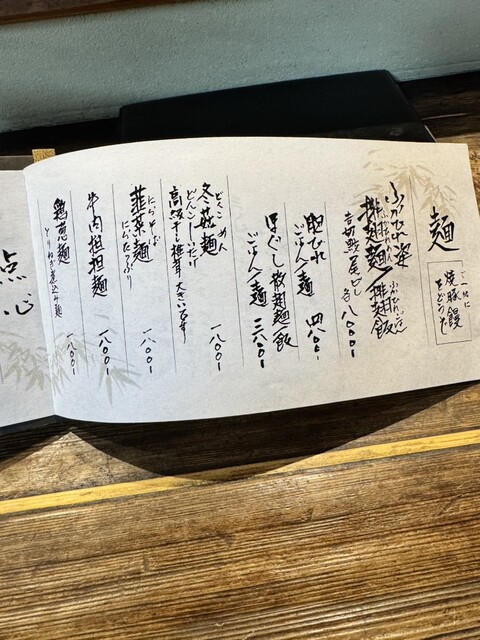 麺
ご一緒に
焼豚饅
をどうぞ
ふかひれ姿
排翅麺/排翅飯
吉切鮫尾びれ
各 八〇〇〇一
胸びれ
ごはん/麺 四八〇〇一
ほぐし 散翅麺/飯
ごはん/麺 二八〇〇一
どんこ めん
冬菇麺
どんこしいたけ
高級干し椎茸 大きいです
一八〇〇一
にらそば
韮菜麺
にらたっぷり
一八〇〇一
牛肉担担麺
一八〇〇一
鶏葱麺
とりねぎ煮込み麺
一八〇〇一
点心